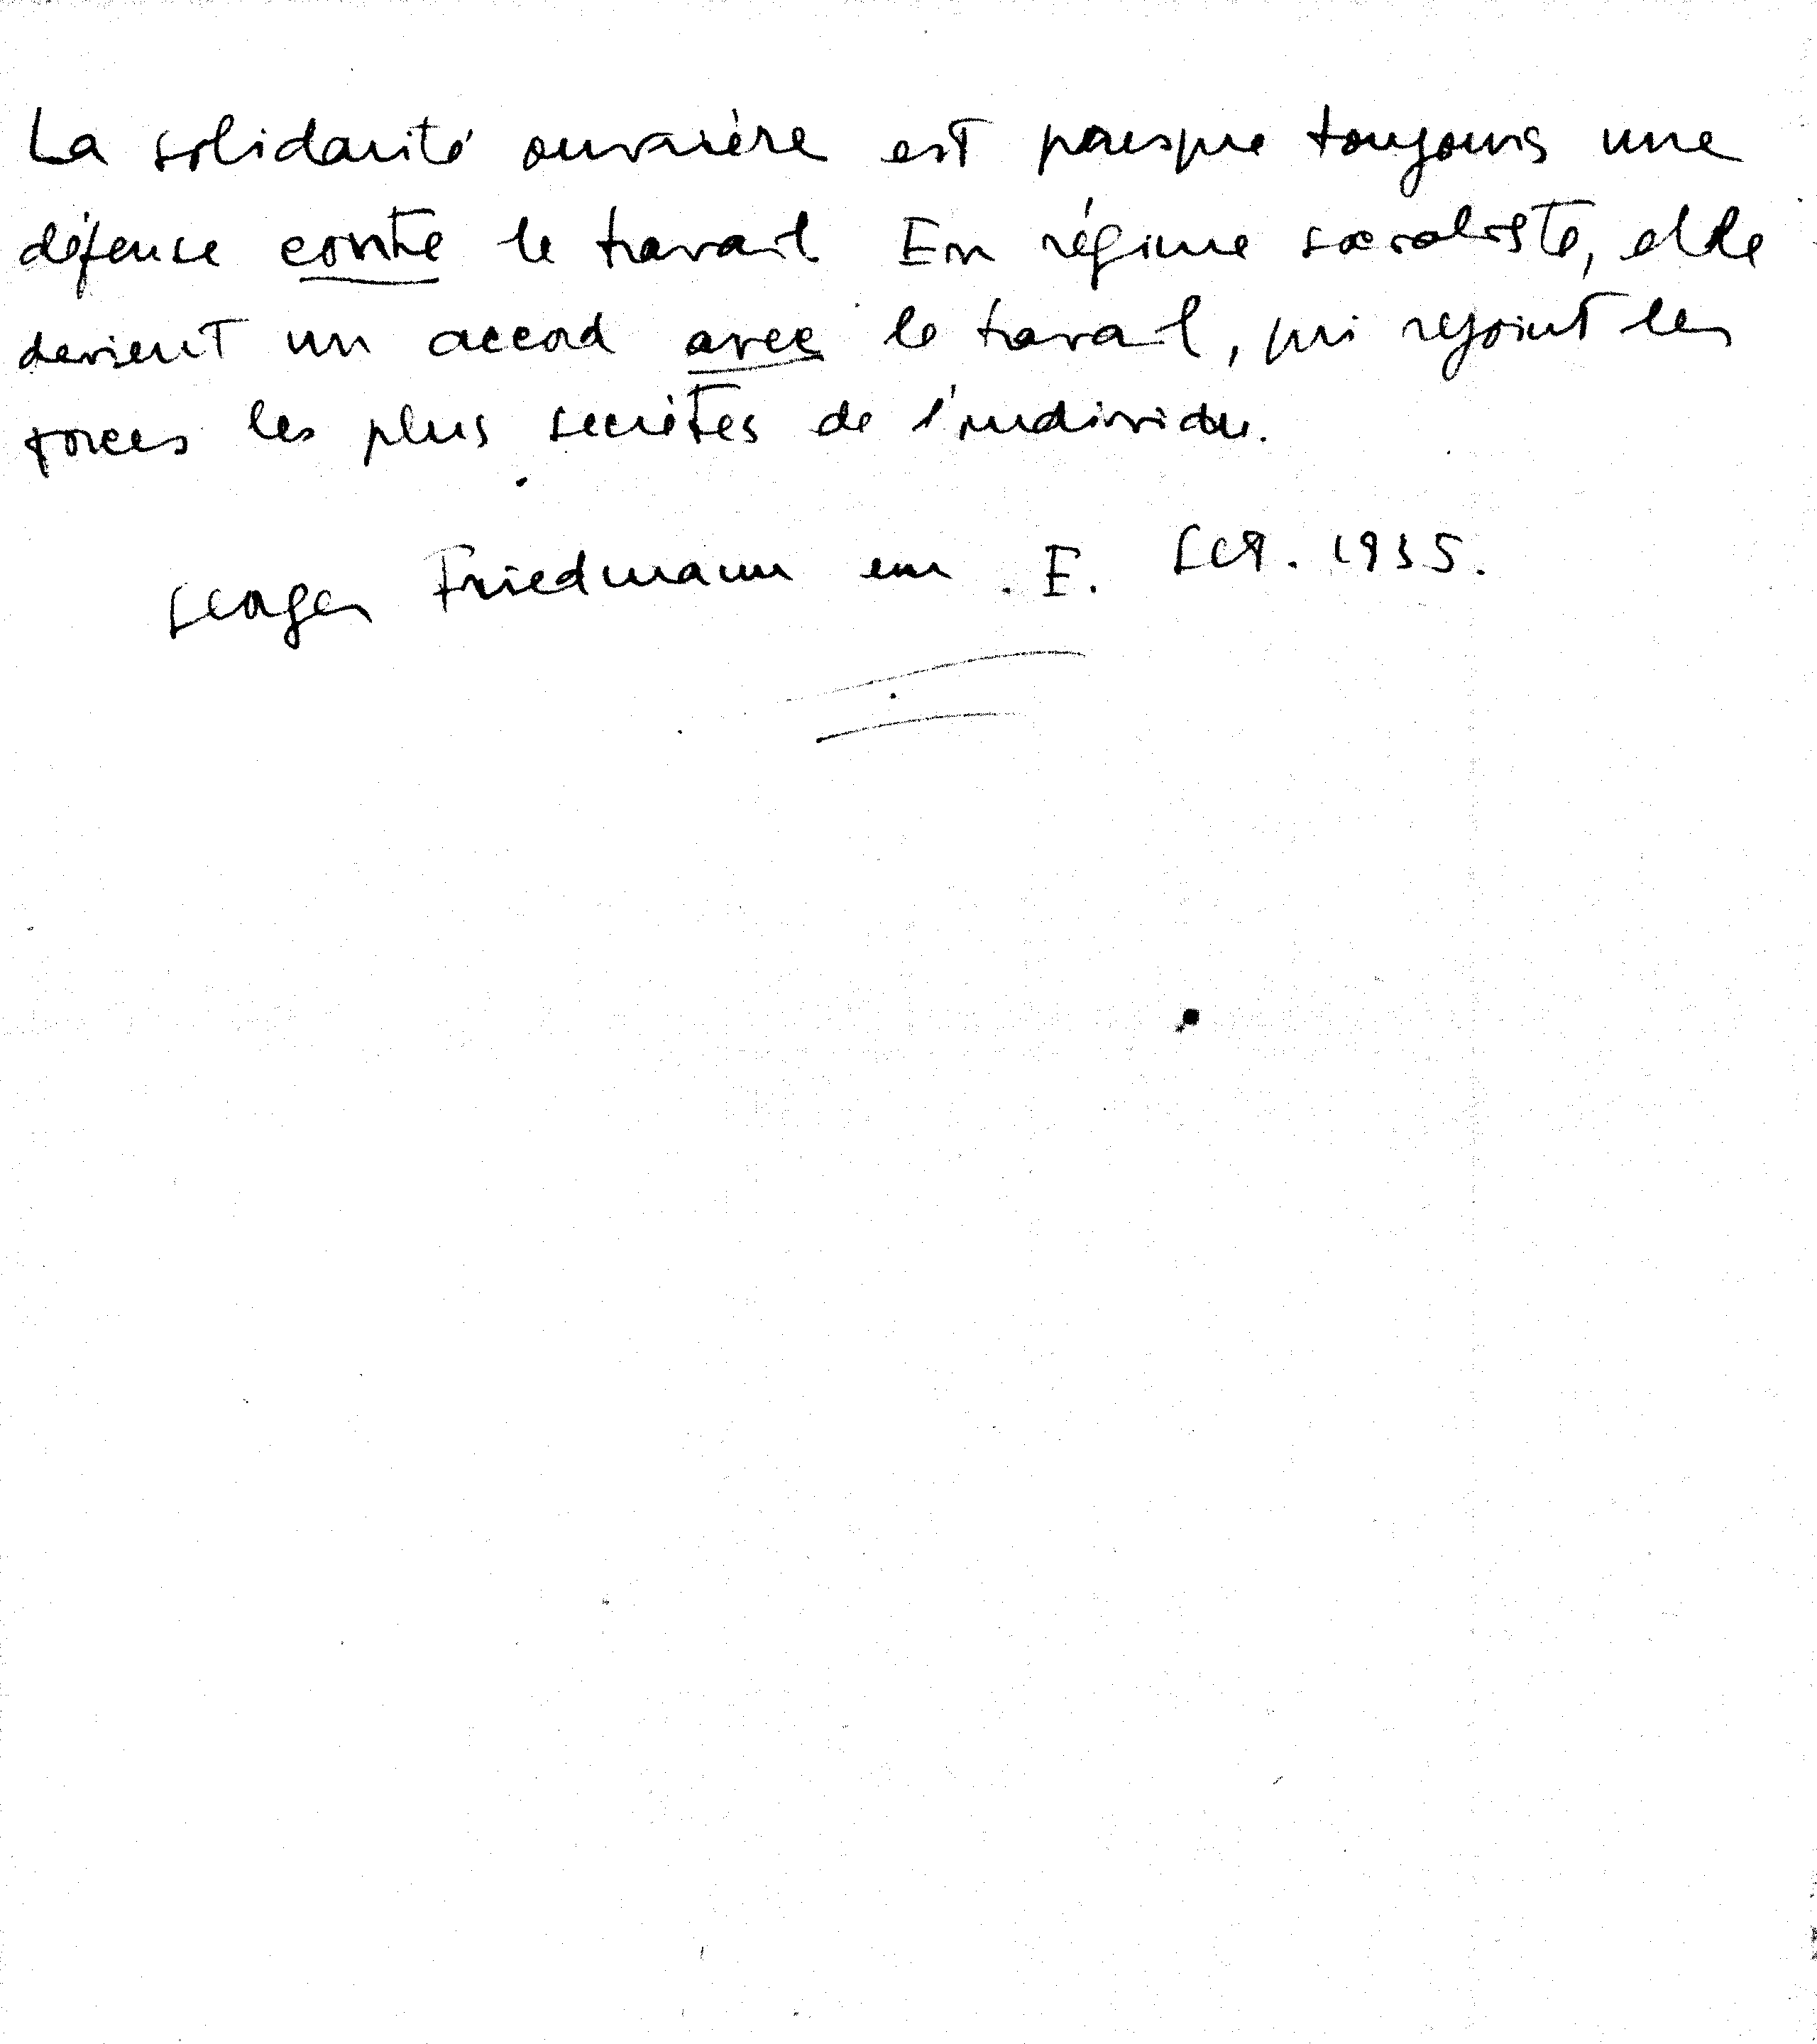 La solidarité ouvrière est presque toujours une
défense contre le travail En régime socialiste, elle
devient un accord avec le travail, qui rejoint les
forces les plus secrètes de l'individu.
Georges Friedmann em . E. 1935.